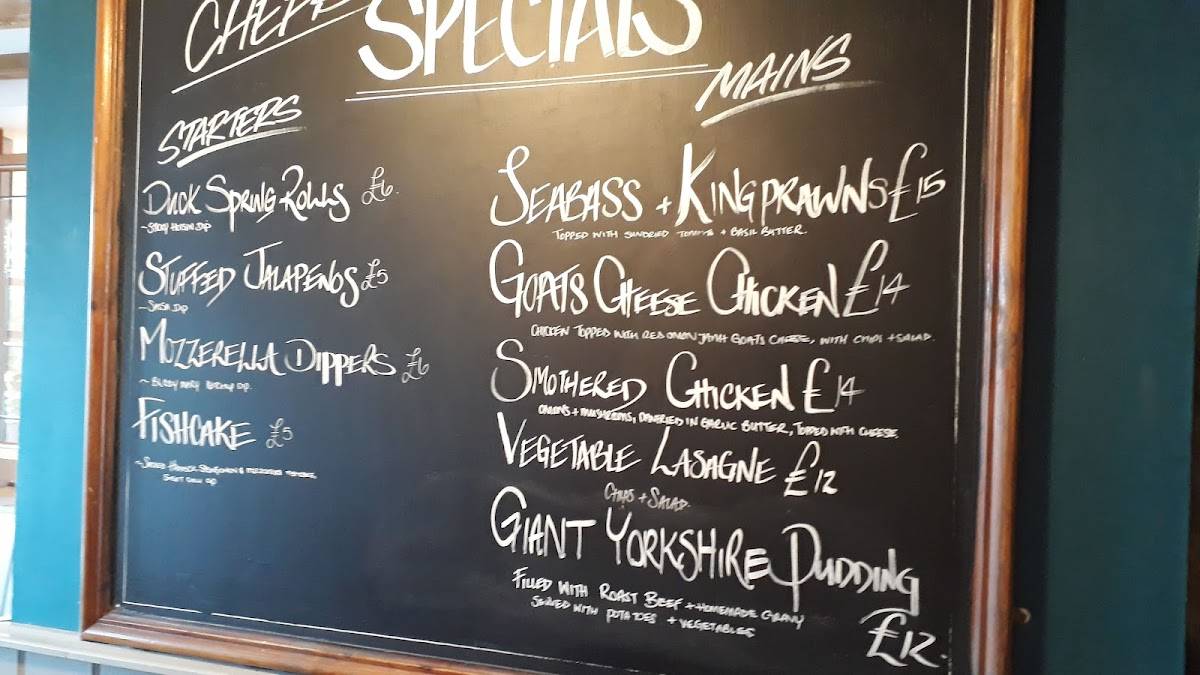 SPECIALS
STARTERS
DUCK SPRING ROLLS £6.
~ STICKY HOISIN DIP
STUFFED JALAPENOS £5
~ SALSA DIP
MOZZERELLA DIPPERS £6
~ BLOODY MARY KETCHUP DIP.
FISHCAKE £5
~ SMOKED HADDOCK, SPRING ONION & MOZZARELLA
SWEET CHILLI DIP
MAINS
SEABASS + KING PRAWNS £15
TOPPED WITH SUNDRIED TOMATO + BASIL BUTTER.
GOATS CHEESE CHICKEN £14
CHICKEN TOPPED WITH RED ONION JAM + GOATS CHEESE, WITH CHIPS + SALAD.
SMOTHERED CHICKEN £14
ONIONS + MUSHROOMS, PANFRIED IN GARLIC BUTTER, TOPPED WITH CHEESE
VEGETABLE LASAGNE £12
CHIPS + SALAD.
GIANT YORKSHIRE PUDDING
FILLED WITH ROAST BEEF + HOMEMADE GRAVY
SERVED WITH POTATOES + VEGETABLES
£12.